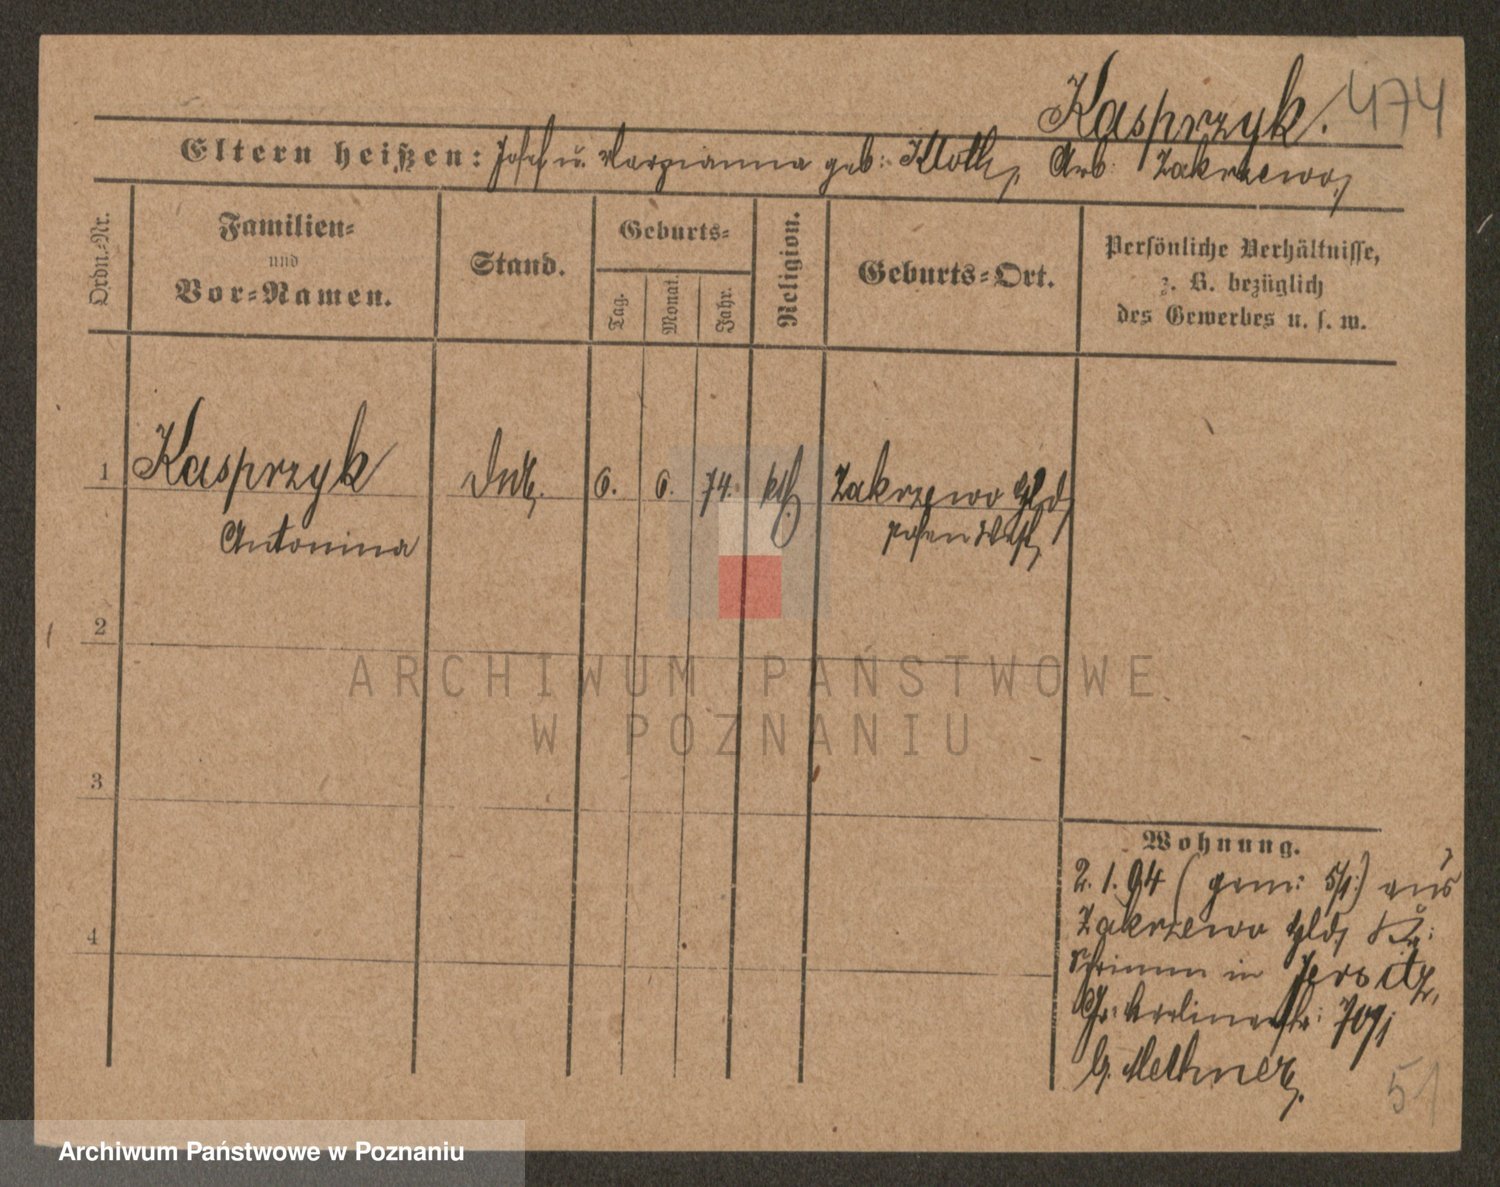 Kasprzyk. 474
Eltern heißen: Josef u. Marzianna geb: Kloth, Arb. Zakrzewo,
Ordn.-Nr.
Familien-
und
Vor-Namen.
Stand.
Geburts-
Tag.
Monat.
Jahr.
Religion.
Geburts-Ort.
Persönliche Verhältnisse,
z. B. bezüglich
des Gewerbes u. s. w.
1 Kasprzyk 6. 6. 74. kth. Zakrzewo Gld,
Antonina Posen West,
2
3
4
Wohnung.
2. 1. 94 (gem: 5/1.) aus
Zakrzewo Gld, Kr:
Schrimm in Jersitz,
Gr: Berlinerstr: 70,
b. Methner,
51
ARCHIWUM PAŃSTWOWE
W POZNANIU
Archiwum Państwowe w Poznaniu